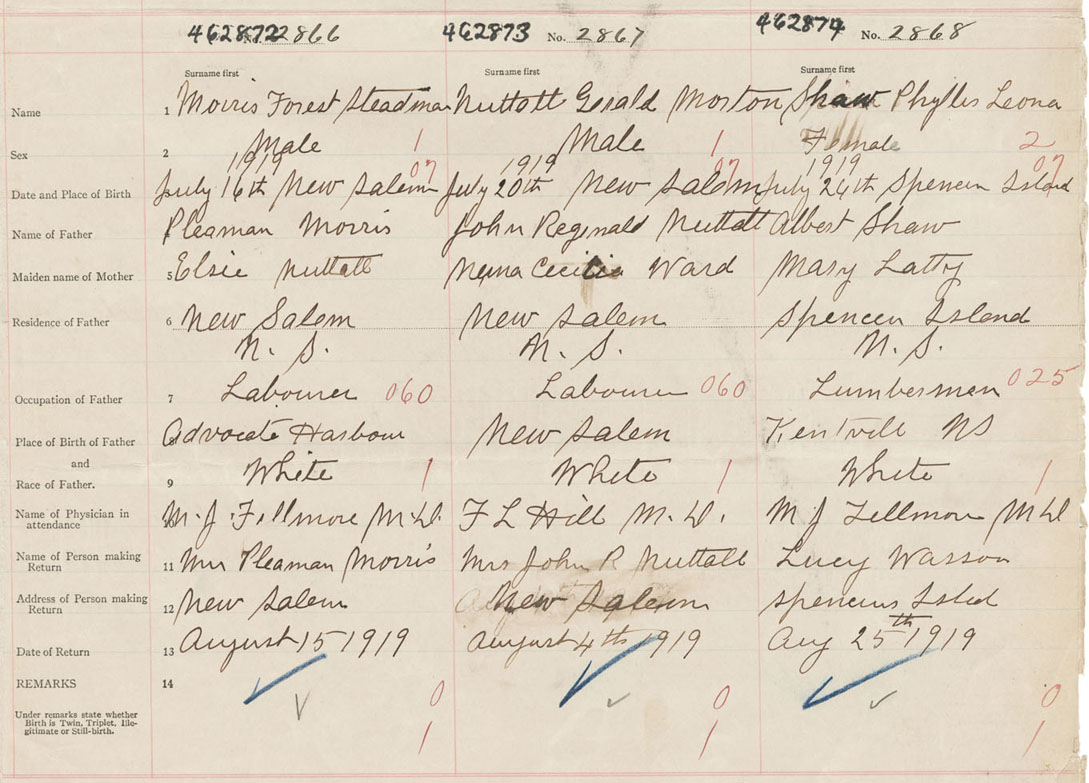 462872 2866 462873 No. 2867 462874 No. 2868
Surname first Surname first Surname first
Name 1 Morris Forest Steadman Nuttall Gerald Morton Shaw Phyllis Leona
Sex 2 Male 1 Male 1 Female 2
1919 07 1919 07 1919 07
Date and Place of Birth July 16th New Salem July 20th New Salem July 24th Spencer Island
Name of Father Pleaman Morris John Reginald Nuttall Albert Shaw
Maiden name of Mother 5 Elsie Nuttall Cecilia Ward Mary Latty
Residence of Father 6 New Salem New Salem Spencer Island
N. S. N. S. N. S.
Occupation of Father 7 Labourer 060 Labourer 060 Lumberman 025
Place of Birth of Father 8 Advocate Harbour New Salem Kentville NS
and
Race of Father. 9 White 1 White 1 White 1
Name of Physician in
attendance 10 M. J. Fillmore M.D. F L Hill M.D. M J Fillmore M D
Name of Person making
Return 11 Mrs Pleaman Morris Mrs John R Nuttall Lucy Wasson
Address of Person making
Return 12 New Salem New Salem Spencers Isld
Date of Return 13 August 15 1919 August 4th 1919 Aug 25th 1919
REMARKS 14
0 0 0
Under remarks state whether
Birth is Twin, Triplet, Ille-
gitimate or Still-birth.
1 1 1